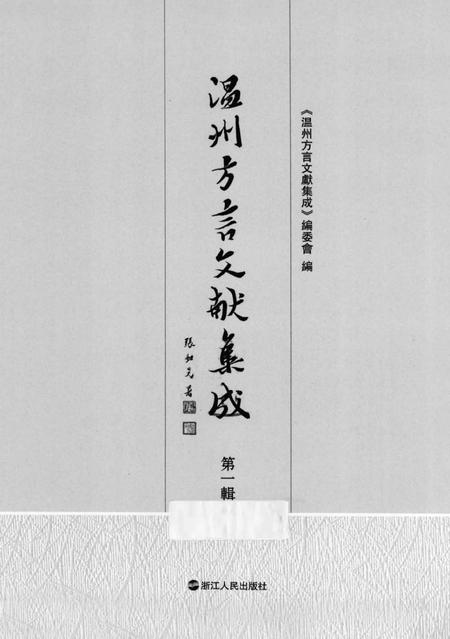 《温州方言文獻集成》編委會 編
温州方言文献集成
張如元署
第一輯
浙江人民出版社